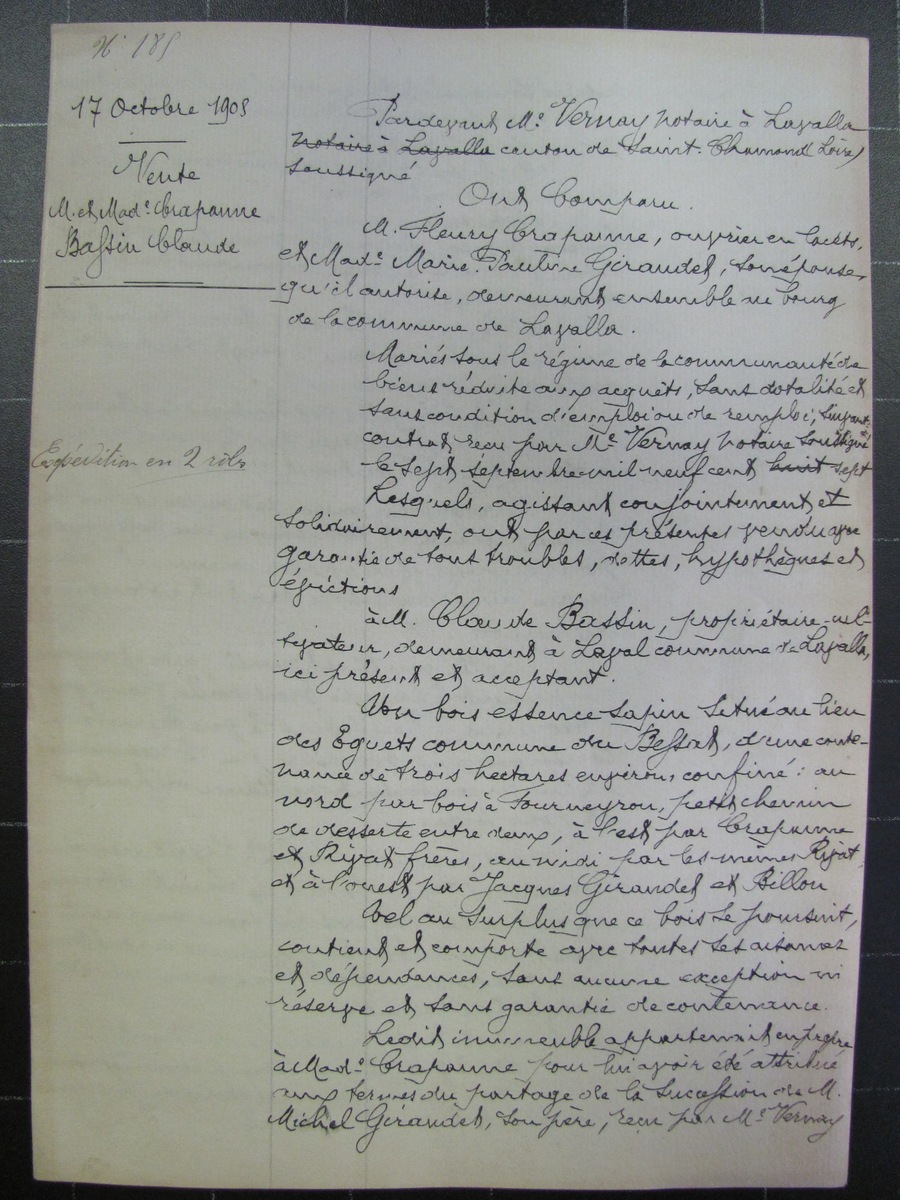 N° 185
17 Octobre 1908
Vente
M. et Made Crapanne
Bassin Claude
Expédition en 2 rôles
Pardevant Me Vernay notaire à Lavalla
notaire à Lavalla canton de Saint-Chamond (Loire)
soussigné
Ont Comparu.
M. Fleury Crapanne, ouvrier en lacets,
et Made Marie-Pauline Giraudet, son épouse,
qu'il autorise, demeurant ensemble au bourg
de la commune de Lavalla.
Mariés sous le régime de la communauté de
biens réduite aux acquêts, sans dotalité et
sans condition d'emploi ou de remploi, suivant
contrat reçu par Me Vernay notaire soussigné
le sept septembre mil neuf cent huit sept
Lesquels, agissant conjointement et
solidairement, ont par ces présentes vendu avec
garantie de tous troubles, dettes, hypothèques et
évictions
à M. Claude Bassin, propriétaire-cul-
tivateur, demeurant à Laval commune de Lavalla,
ici présent et acceptant.
Un bois essence sapin situé au lieu
des Eguets commune du Bessat, d'une conte-
nance de trois hectares environ, confiné : au
nord par bois à Fourneyron, petit chemin
de desserte entre deux, à l'est par Crapanne
et Rivat frères, au midi par les mêmes Rivat,
et à l'ouest par Jacques Giraudet et Billon
Tel au surplus que ce bois se poursuit,
contient et comporte avec toutes ses aisances
et dépendances, sans aucune exception ni
réserve et sans garantie de contenance.
Ledit immeuble appartenait en propre
à Made Crapanne pour lui avoir été attribué
aux termes du partage de la succession de M.
Michel Giraudet, son père, reçu par Me Vernay